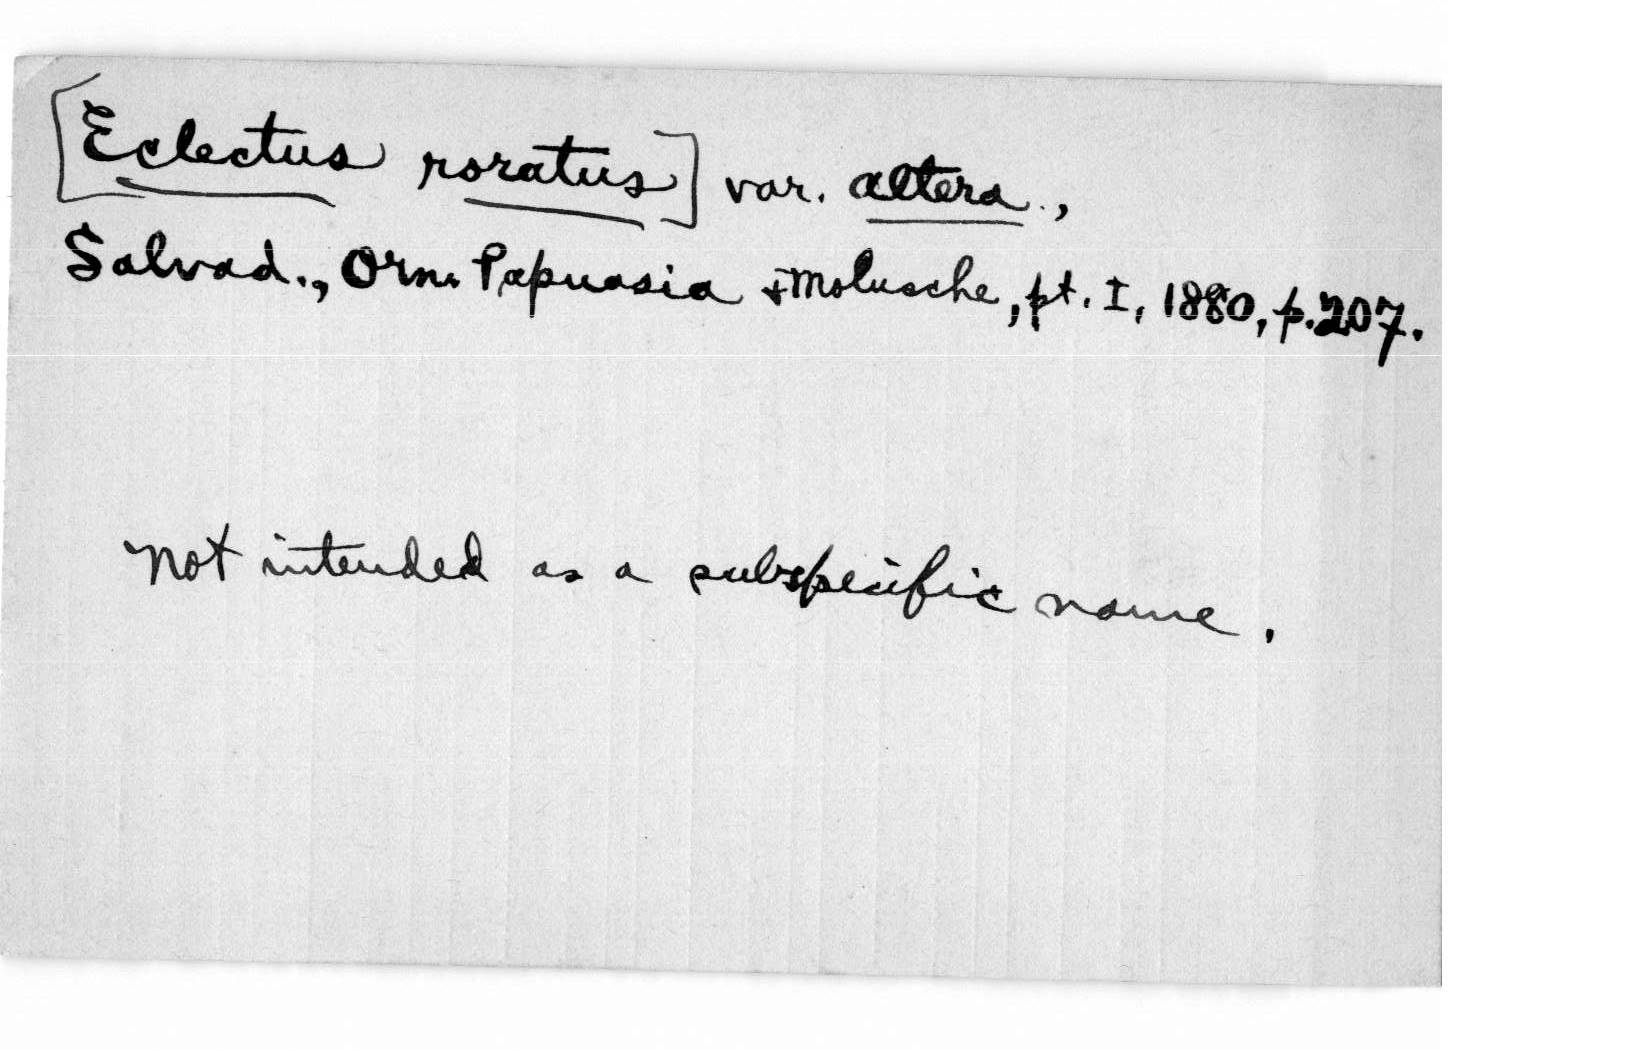 [Eclectus roratus] var. altera.,
Salvad., Orn. Papuasia + Molusche, pt. I, 1880, p. 207.
Not intended as a subspecific name.